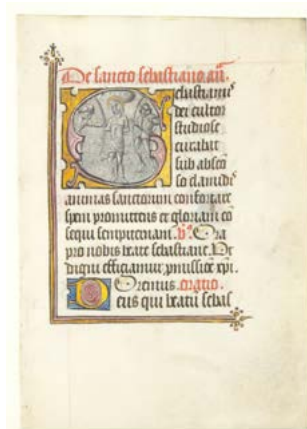 De sancto sebastiano. añ.
ebastianus
dei cultor
studiose
curabat
sub abscon
so clamidis
animas sanctorum confortare
spem promittens et gloriam co
sequi sempiternam. Ora
pro nobis beate sebastiane. Ut
digni efficiamur promissiõe xpi.
Oremus. oratio.
eus qui beatũ sebas